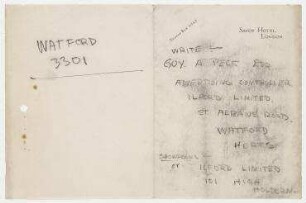 WATFORD
3301
SAVOY HOTEL
LONDON
WRITE
GUY A
ADVERTISING CONTROLLER
ILFORD LIMITED
ST ALBANS ROAD
WATFORD
HERTS
ILFORD LIMITED
101 HIGH
HOLBORN